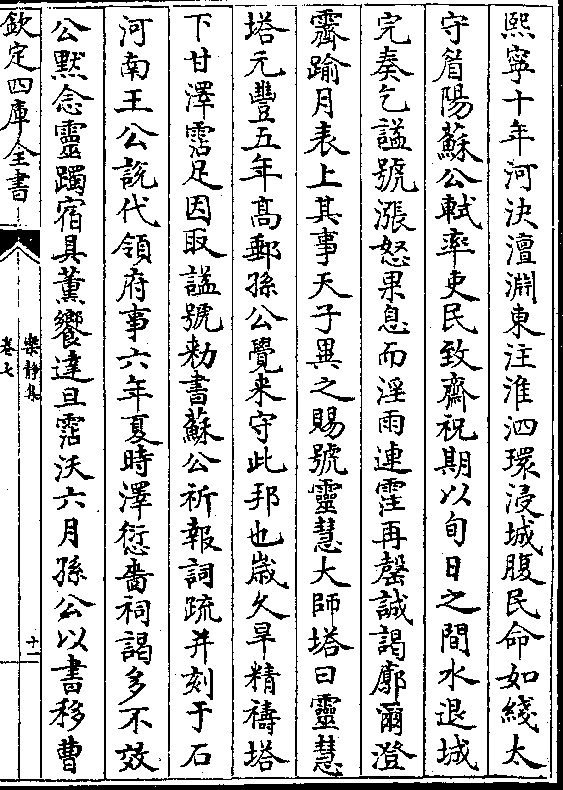 熙寧十年河決澶淵東注淮泗環浸城腹民命如綫太
守眉陽蘇公軾率吏民致齋祝期以旬日之間水退城
完奏乞諡號漲怒果息而淫雨連霔再罄誠謁廓爾澄
霽踰月表上其事天子異之賜號靈慧大師塔曰靈慧
塔元豐五年高郵孫公覺来守此邦也嵗久旱精禱塔
下甘澤霑足因取諡號勑書蘇公祈報詞疏并刻于石
河南王公説代領府事六年夏時澤愆嗇祠謁多不效
公黙念靈躅宿具薰饗達旦霑沃六月孫公以書移曹
欽定四庫全書
樂静集
卷七
十一